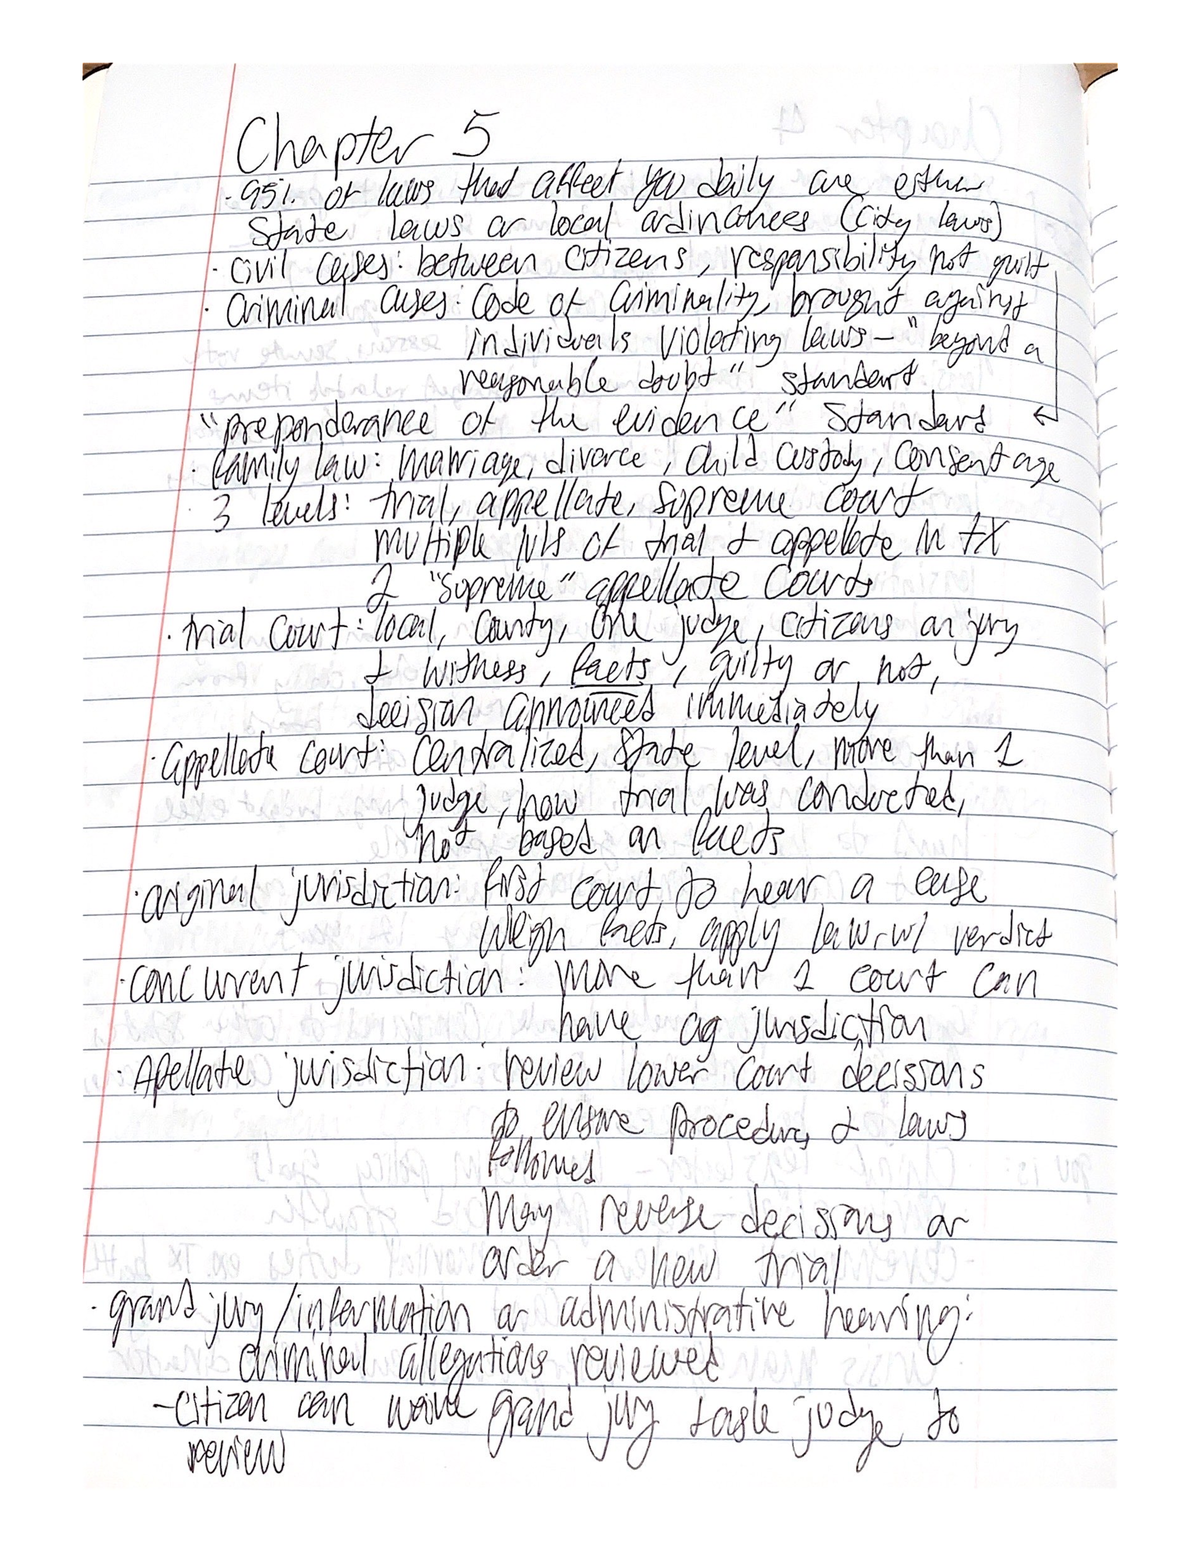 Chapter 5
· 95% of laws that affect you daily are either
State laws or local ordinances (City laws)
· Civil cases: between citizens, responsibility not guilt
· Criminal cases: Code of Criminality, brought against
individuals violating laws - "beyond a
reasonable doubt" standart
"preponderance of the evidence" Standard
· family law: marriage, divorce, child custody, consent age
· 3 levels: trial, appellate, Supreme court
multiple lvls of trial & appellate in TX
2 "Supreme" appellate Courts
· trial court: local, County, One judge, citizens on jury
& witness, facts, guilty or not,
decision announced immediately
· Appellate court: Centralized, State level, more than 1
judge, how trial was conducted,
not based on facts
· original jurisdiction: first court to hear a case
Weigh facts, apply law w/ verdict
· concurrent jurisdiction: more than 1 court can
have og jurisdiction
· Apellate jurisdiction: review lower court decisions
to ensure procedures & laws
followed
may reverse decisions or
order a new trial
· grand jury/information or administrative hearing:
criminal allegations reviewed
- Citizen can waive grand jury judge to
review